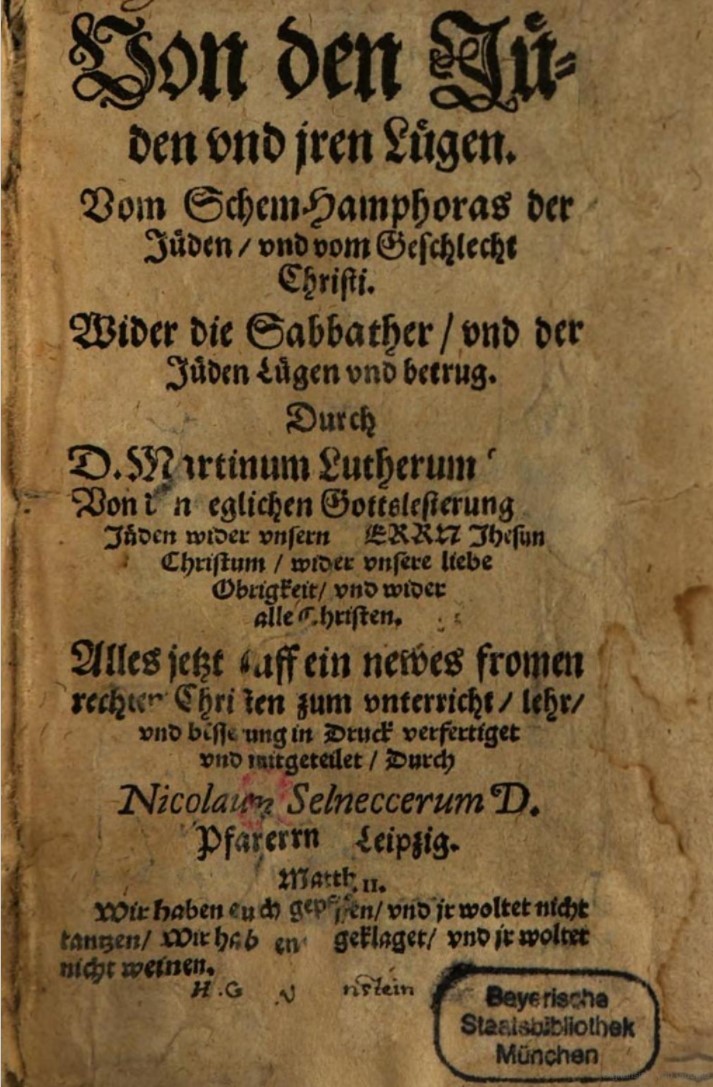 Von den Jü-
den vnd jren Lügen.
Vom Schem-Hamphoras der
Jüden / vnd vom Geschlecht
Christi.
Wider die Sabbather / vnd der
Jüden Lügen vnd betrug.
Durch
D. Martinum Lutherum
Von eglichen Gottslesterung
Jüden wider vnsern ERRN Jhesun
Christum / wider vnsere liebe
Obrigkeit / vnd wider
alle Christen.
Alles jetzt auff ein newes fromen
rechten Christen zum vnterricht / lehr /
vnd besserung in Druck verfertiget
vnd mitgeteilet / Durch
Nicolaum Selneccerum D.
Pfarerrn Leipzig.
Matth. 11.
Wir haben euch gepfiffen / vnd jr woltet nicht
tantzen / Wir haben geklaget / vnd jr woltet
nicht weinen.
Bayerische
Staatsbibliothek
München